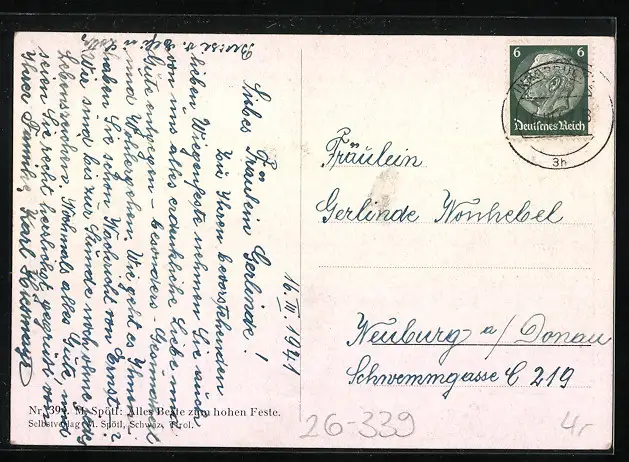 16. III 1941
Liebes Fräulein Gerlinde!
Zu Ihrem bevorstehenden
lieben Wiegenfeste nehmen Sie nun
von uns alles erdenkliche Liebe und
Gute entgegen - besonders Gesundheit
und Wohlergehen. Wie geht es Ihnen?
haben Sie schon Nachricht von Ernst?
Wir sind bis zur Stunde noch ohne jedes
Lebenszeichen. Nochmals alles Gute, und
seien Sie recht herzlichst gegrüsst von
Ihrer Familie Karl
Fräulein
Gerlinde Nonhebel
Neuburg a/ Donau
Schwemmgasse C 219
6 6
Deutsches Reich
3h
Nr. 39. M. Spötl: Alles Beste zum hohen Feste.
Selbstverlag M. Spötl, Schwaz, Tirol.
26-339
4,-